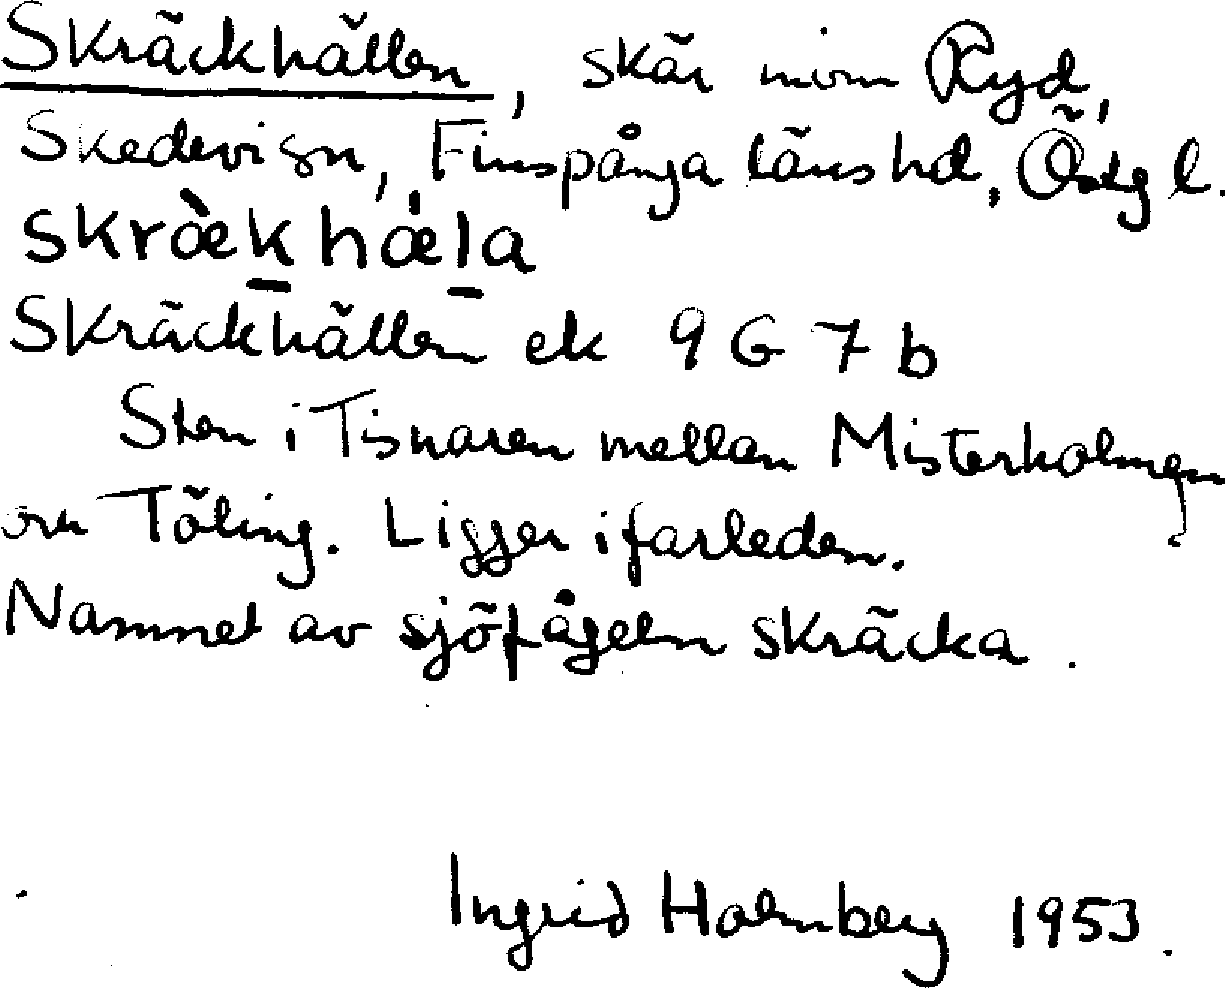 Skräckhällen, skär inom Ryd,
Skedevi sn, Finspånga läns hd, Östg l.
skræ̀khæla
Skräckhällen ek 9 G 7 b
Sten i Tisnaren mellan Misterholmen
och Töling. Ligger i farleden.
Namnet av sjöfågeln skräcka.
Ingrid Holmberg 1953.